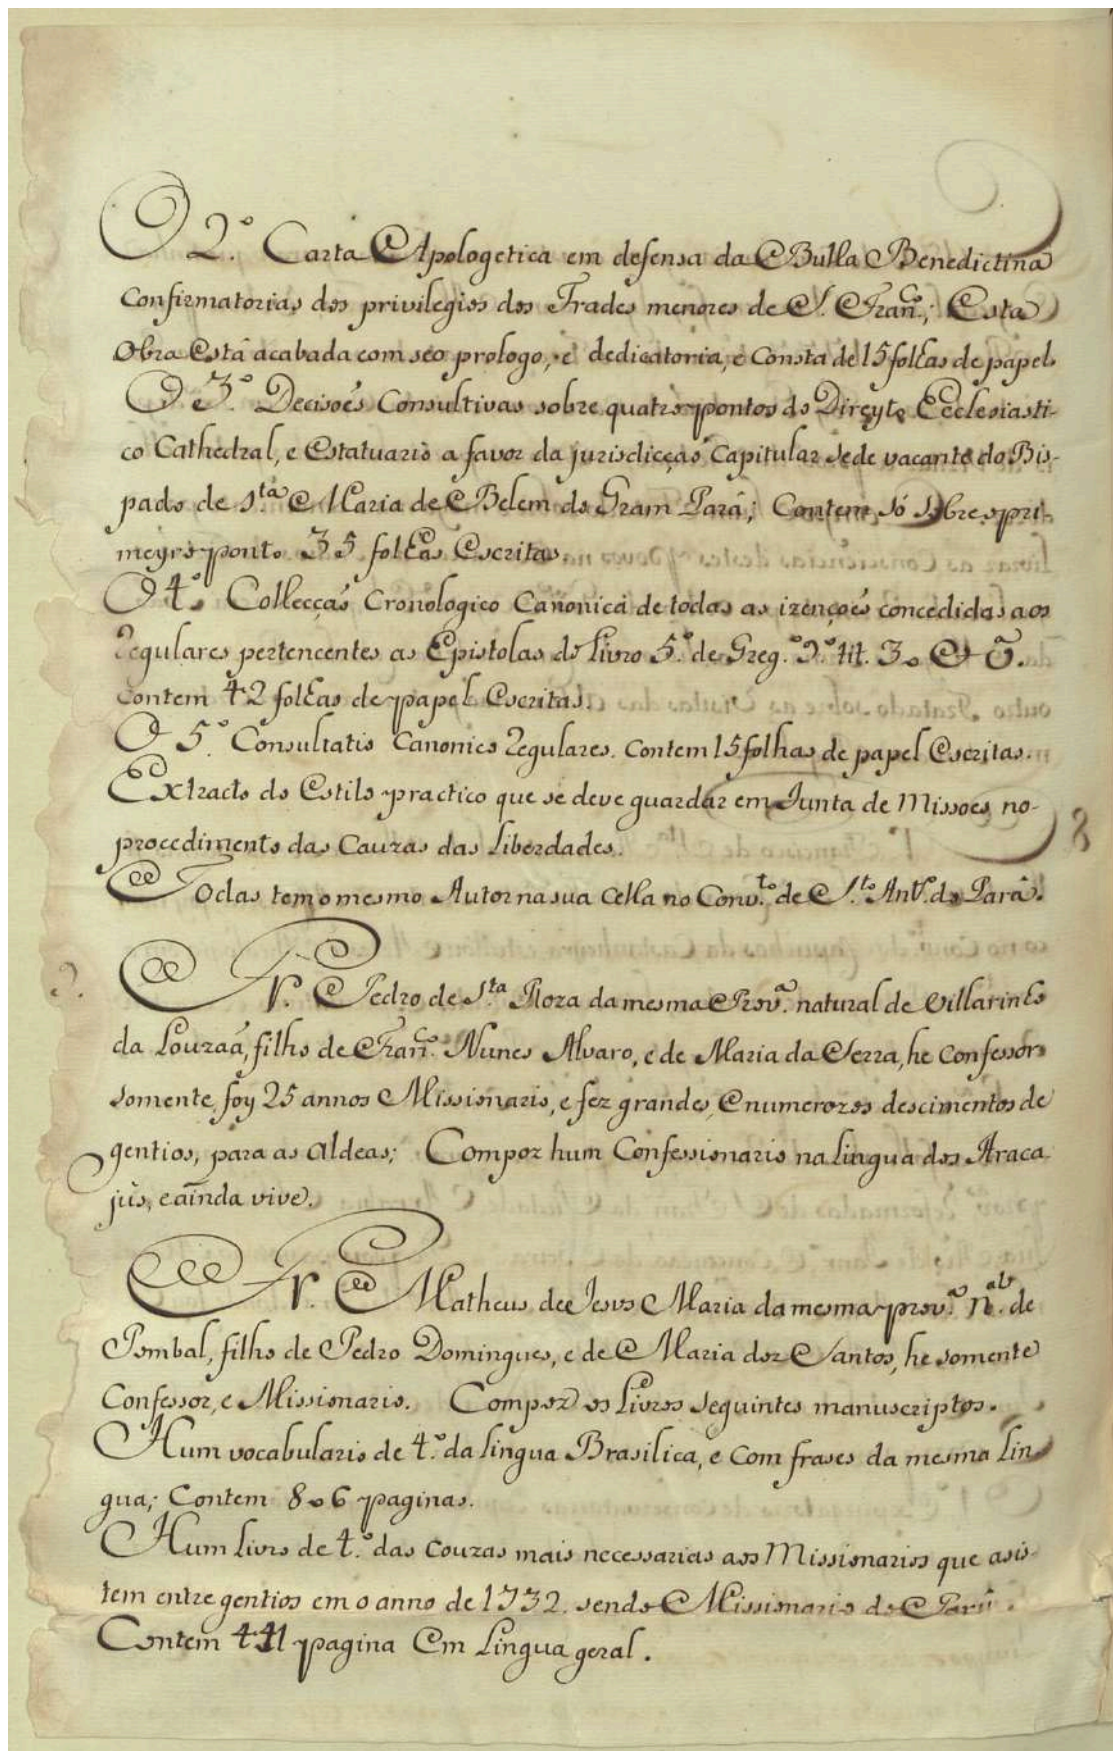 O 2.º Carta Apologetica em defensa da Bulla Benedictina
Confirmatorias dos privilegios dos Frades menores de S. Fran.co; Esta
Obra Está acabada com seo prologo, e dedicatoria, e Consta de 15 folhas de papel
O 3.º Decisoẽs Consultivas sobre quatro pontos do Direyto Ecclesiasti-
co Cathedral, e Estatuario a favor da jurisdicçaõ Capitular sede vacante do Bis-
pado de S.ta Maria de Belem do Gram Pará; Contem só sobre o pri-
meyro ponto 35 folhas Escritas.
O 4.º Collecçaõ Cronologico Canonica de todas as izençoẽs concedidas aos
Regulares pertencentes as Epistolas do Livro 5.º de Greg.º 9.º tit. 3.
contem 42 folhas de papel Escritas.
O 5.º Consultatio Canonico Regulares. contem 15 folhas de papel Escritas.
Extracto do Estilo practico que se deve guardar em Junta de Missoẽs no
procedimento das Cauzas das Liberdades.
Todas tem o mesmo Autor na sua Cella no Conv.to de S.to Ant.º do Pará.
Fr. Pedro de S.ta Roza da mesma Prov.ª natural de Villarinho
da Louzaã, filho de Fran.co Nunes Alvaro, e de Maria da Serra, he Confessor
somente, foy 25 annos Missionario, e fez grandes, e numerozos descimentos de
gentios, para as aldeas; Compoz hum Confessionario na lingua dos Araca
jùs, e ainda vive.
Fr. Matheus de Jesus Maria da mesma prov.ª n.al de
Pombal, filho de Pedro Domingues, e de Maria dos Santos, he somente
Confessor, e Missionario. Compoz os Livros seguintes manuscriptos.
Hum vocabulario de 4.º da lingua Brasilica, e Com frases da mesma Lin
gua; Contem 806 paginas.
Hum Livro de 4.º das Couzas mais necessarias aos Missionarios que asis-
tem entre gentios em o anno de 1732. sendo Missionario do Parù.
Contem 441 pagina Em Lingua geral.